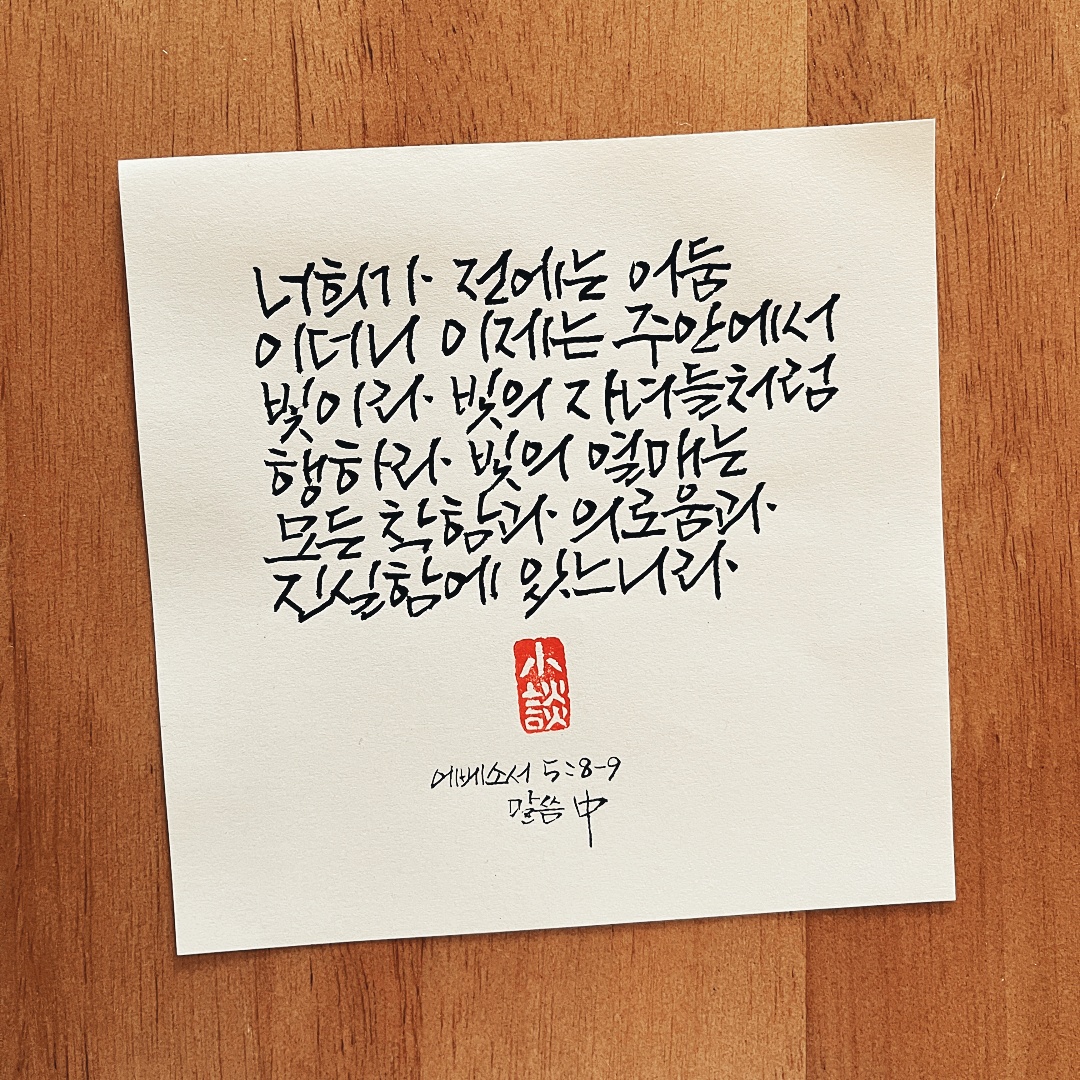 너희가 전에는 어둠
이더니 이제는 주안에서
빛이라 빛의 자녀들처럼
행하라 빛의 열매는
모든 착함과 의로움과
진실함에 있느니라
小
談
에베소서 5:8-9
말씀 中